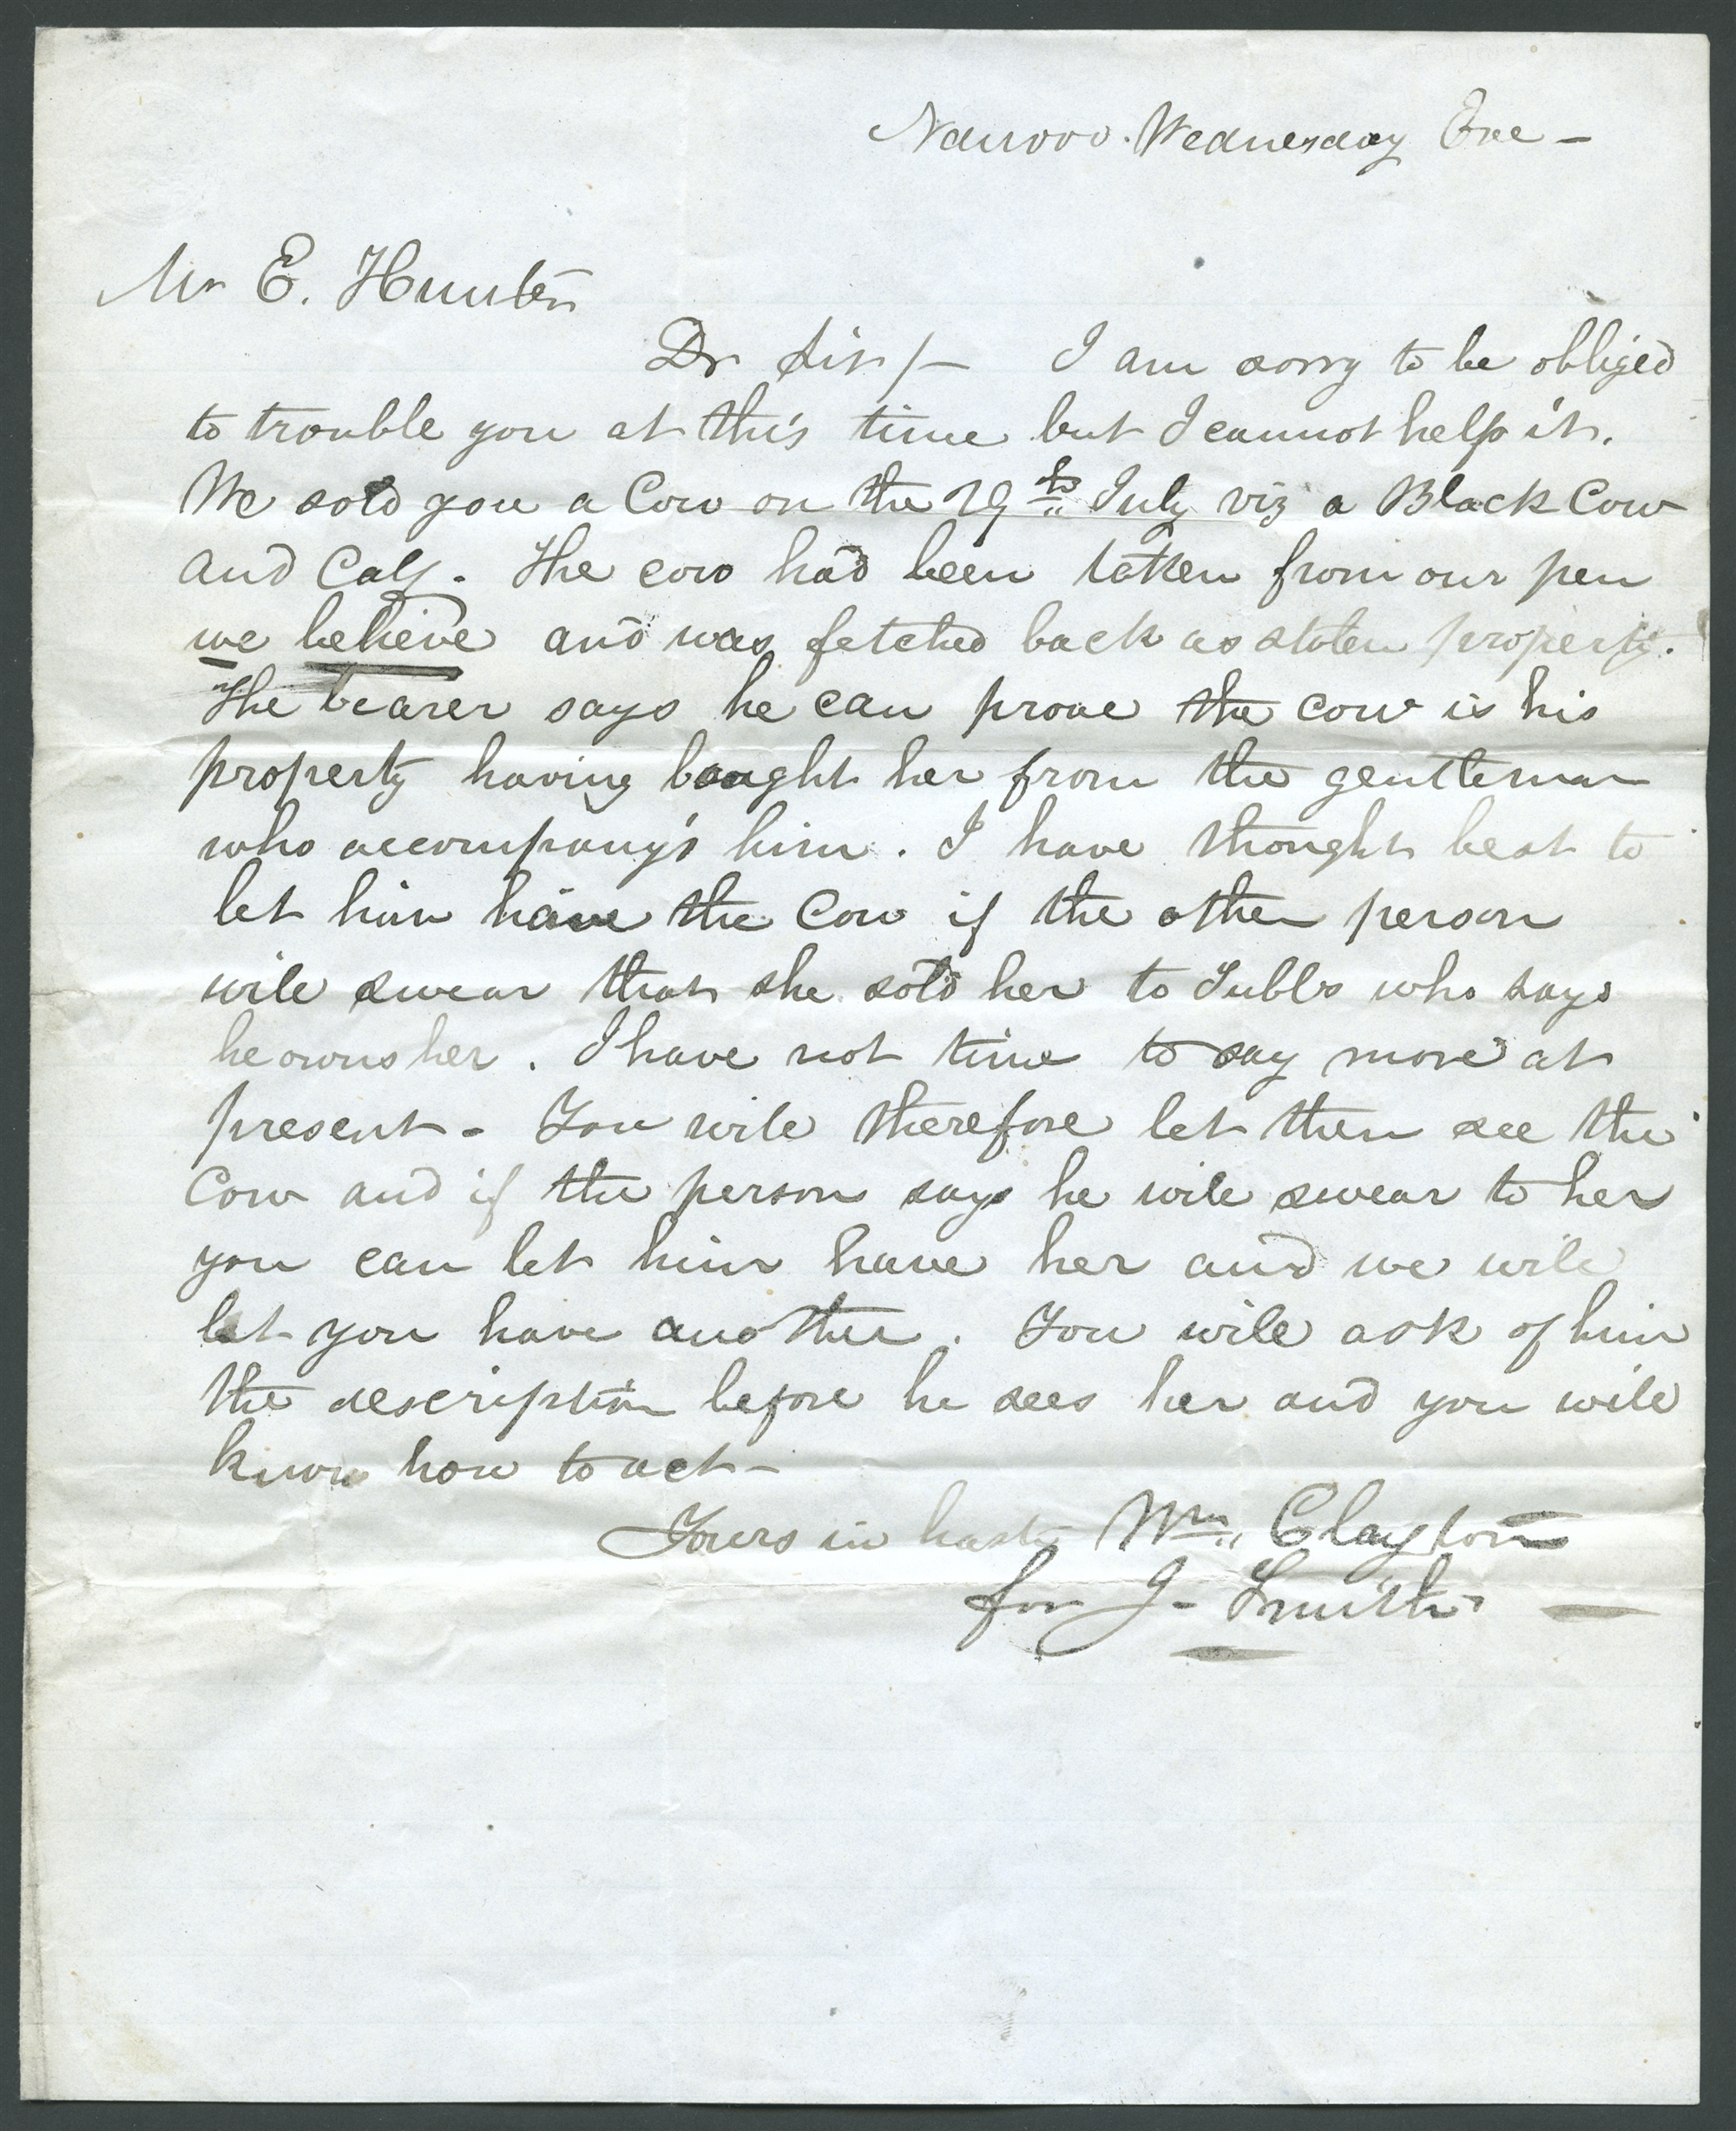 Nauvoo. Wednesday Eve –
Mr E. Hunter
Dr Sir/– I am sorry to be obliged
to trouble you at this time but I cannot help it.
We sold you a Cow on the 19th July viz a Black Cow
and Calf. The cow had been taken from our pen
we believe and was fetched back as stolen property.
The bearer says he can prove the cow is his
property having bought her from the gentleman
who accompany's him. I have thought best to
let him have the Cow if the other person
will swear that she sold her to Tubbs who says
he owns her. I have not time to say more at
present – You will therefore let them see the
Cow and if the person says he will swear to her
you can let him have her and we will
let you have another. You will ask of him
the description before he sees her and you will
know how to act –
Yours in haste Wm Clayton
for J– Smith –